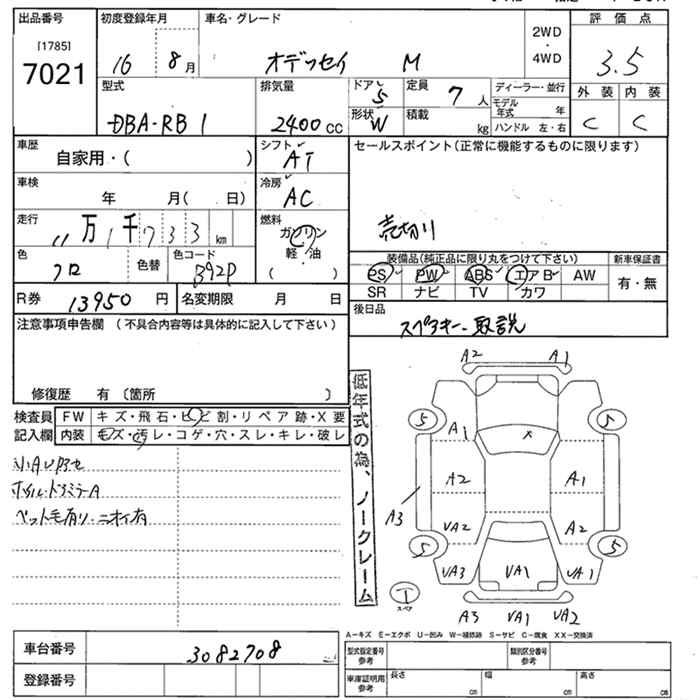 出品番号 初度登録年月 車名・グレード 2WD・4WD 評価点
[1785]
7021 16 8月 オデッセイ M 3.5
型式 排気量 ドア 5 定員 7人 ディーラー・並行 外装 内装
DBA-RB1 2400cc 形状 W 積載 kg モデル年式 年 C C
ハンドル 左・右
車歴 シフト セールスポイント(正常に機能するものに限ります)
自家用・( ) AT
車検 年 月( 日) 冷房 AC
走行 11万1千733km 燃料 ガソリン 売切り
軽・油
( )
色 クロ 色替 色コード B92P 装備品(純正品に限り丸をつけて下さい) 新車保証書
PS PW ABS エアB AW 有・無
SR ナビ TV カワ
R券 13950円 名変期限 月 日 後日品
スペアキー・取説
注意事項申告欄 (不具合内容等は具体的に記入して下さい)
修復歴 有 (箇所 )
検査員 FW キズ・飛石・ヒビ割・リペア跡・X要
記入欄 内装 キズ・汚レ・コゲ・穴・スレ・キレ・破レ
小AUアセ
ホイル・ドアミラーA
ペット毛有り・ニオイ有
低年式の為、ノークレーム
A2 A1
5 5
A1 X
A2 A1
A3 UA2 A2
5 5
UA3 UA1 UA1
T
スペア
A3 UA1 UA2
A-キズ E-エクボ U-凹み W-補修跡 S-サビ C-腐食 XX-交換済
車台番号 3082708 型式指定番号 参考 類別区分番号 参考
登録番号 車庫証明用 参考 長さ cm 幅 cm 高さ cm